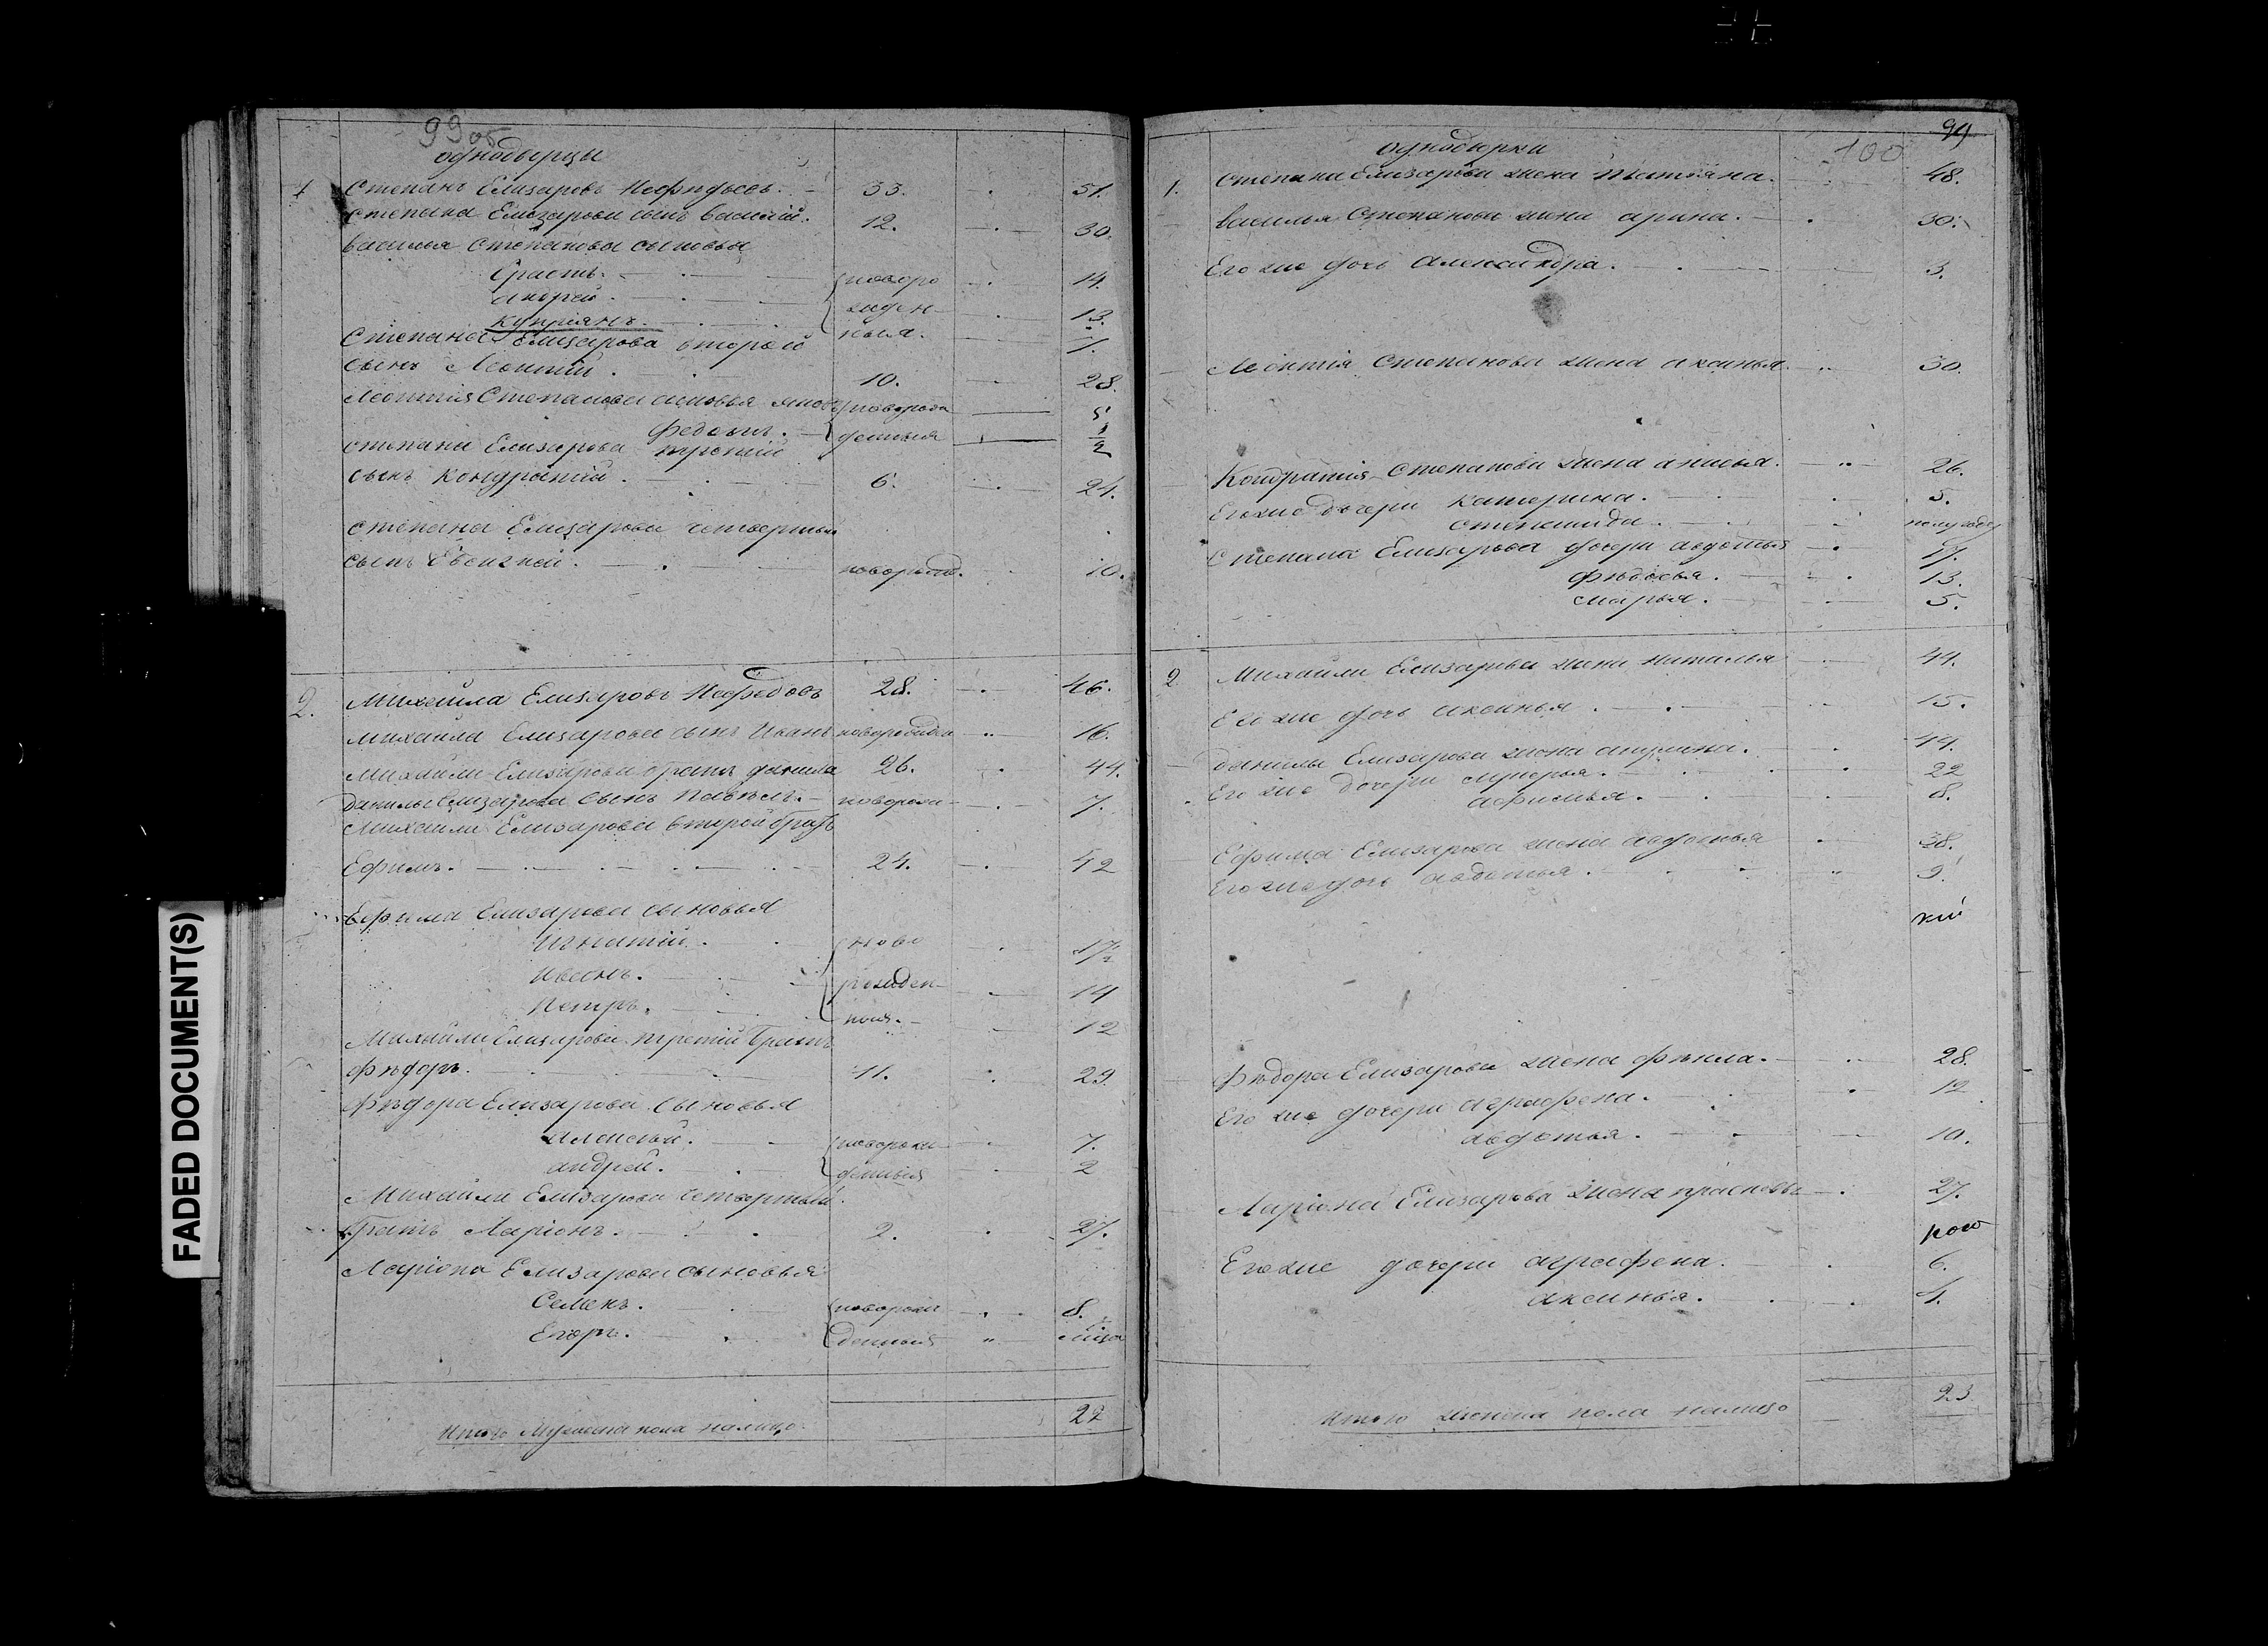 99об
однодворцы
1 Степанъ Елизаровъ Нефѣдовъ. 33. 51.
Степана Елизарова сынъ Василій. 12. 30.
Василья Степанова сыновья
Ерастъ. новоро 14.
Андрей. жден 13.
Купріянъ. ныя. 7.
Степана Елизарова второй
сынъ Леонтій. 10. 28.
Леонтія Степанова сыновья новорож
Федотъ. денныя
Степана Елизарова третій
сынъ Кондратій. 6. 24.
Степана Елизарова четвертый
сынъ новорожд. 10.
2. Михайла Елизаровъ Нефедовъ 28. 46.
Михайла Елизарова сынъ Иванъ новорожден 16.
Михайлы Елизарова братъ Данила 26. 44.
Данилы Елизарова сынъ Павелъ. новорож 7.
Михайлы Елизарова второй братъ
Ефимъ. 24. 42
Ефима Елизарова сыновья
Игнатій. ново 17
Иванъ. рожден 14
Петръ. ныя. 12
Михайлы Елизарова третій братъ
Фѣдоръ. 11. 29.
Фѣдора Елизарова сыновья
Алексѣй. новорож 7.
Андрей. денныя 2
Михайлы Елизарова четвертый
братъ Ларіонъ. 2. 27.
Ларіона Елизарова сыновья
Семенъ. новорож 8.
Егоръ. денныя
Итого Мужеска пола налицо. 22
99
100
однодворки
1. Степана Елизарова жена Татьяна. 48.
Василья Степанова жена Арина. 30.
Его же дочь Александра. 3.
Леонтія Степанова жена Аксинья. 30.
Кондратія Степанова жена Анисья. 26.
Его же дочери Катерина. 5.
Степанида. полугода
Степана Елизарова дочери Авдотья 17.
Фѣдосья. 13.
Марья. 5.
2 Михайлы Елизарова жена Наталья 44.
Его же дочь Аксинья. 15.
Данилы Елизарова жена Акулина. 44.
Его же дочери Лукерья. 22
Афимья. 8.
Ефима Елизарова жена Авдотья 38.
Его же дочь Авдотья. 9.
кій
Фѣдора Елизарова жена Фѣкла. 28.
Его же дочери Аграфена. 12
Авдотья. 10.
Ларіона Елизарова жена Прасковья 27.
ково
Его же дочери Аграфена. 6.
Аксинья. 4.
Итого женска пола налицо 23
FADED DOCUMENT(S)